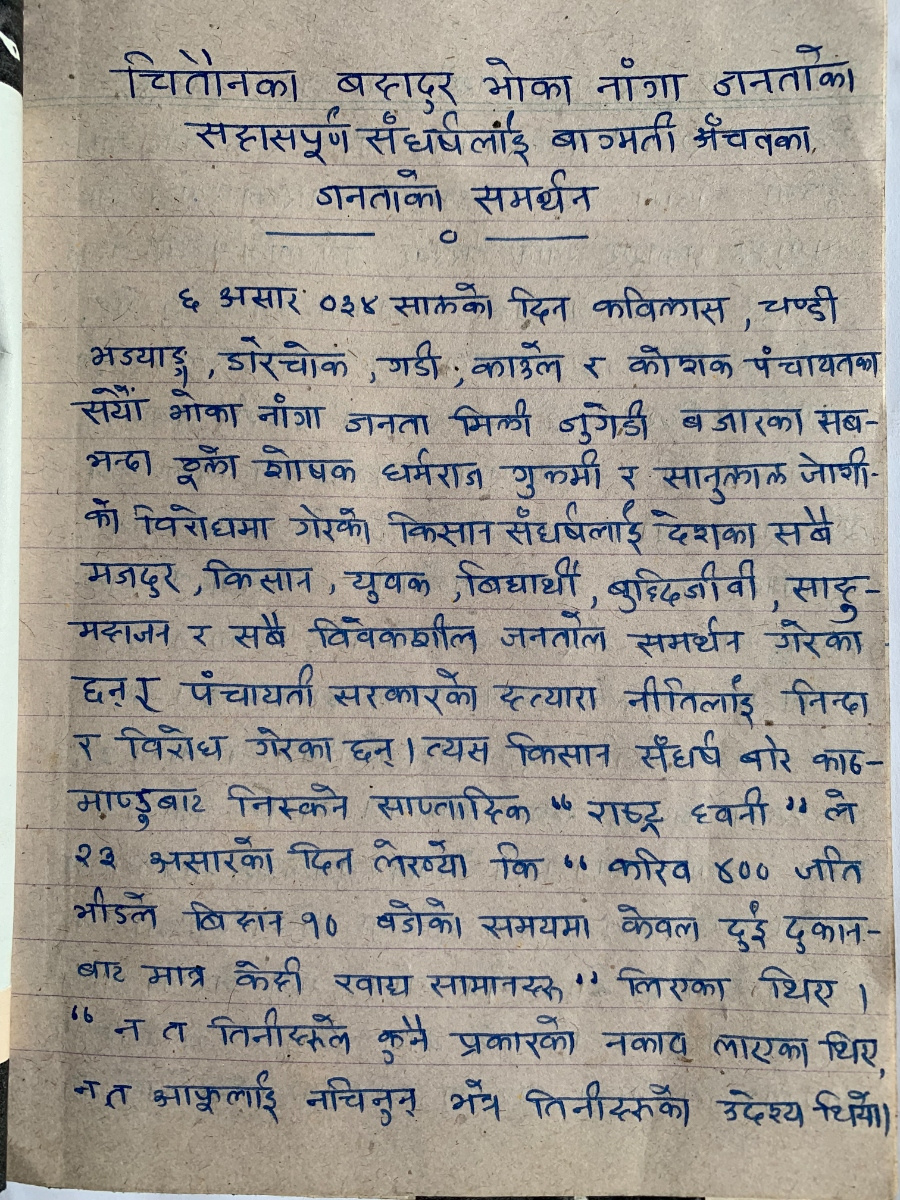 चितौनका बहादुर भोका नाँगा जनताको
सहासपूर्ण सँघर्षलाई बाग्मती अँचलका
जनताको समर्थन
६ असार ०३४ सालको दिन कविलास , चण्डी
भञ्याङ्ग , डोरचोक , गडी , काउले र कोराक पंचायतका
सयौं भोका नाँगा जनता मिली जुगेडी बजारका सब-
भन्दा ठूलो शोषक धर्मराज गुरूमी र सानुलाल जोशी-
को विरोधमा गरेको किसान सँघर्षलाई देशका सबै
मजदुर , किसान , युवक , बिद्यार्थी , बुद्दिजीवी , साहु-
महाजन र सबै विवेकशील जनताले समर्थन गरेका
छन् र पंचायती सरकारको हत्यारा नीतिलाई निन्दा
र विरोध गरेका छन् । त्यस किसान सँघर्ष बारे काठ-
माण्डुबाट निस्कने साप्ताहिक “ राष्ट्र ध्वनी ” ले
२३ असारको दिन लेख्यो कि “ करिव ४०० जति
भीडले बिहान १० बजेको समयमा केवल दुई दुकान-
बाट मात्र केही खाद्य सामानहरू ” लिएका थिए ।
“ न त तिनीहरूले कुनै प्रकारको नकाव लाएका थिए,
न त आफूलाई नचिनुन् भन्ने तिनीहरूको उदेश्य थियो।